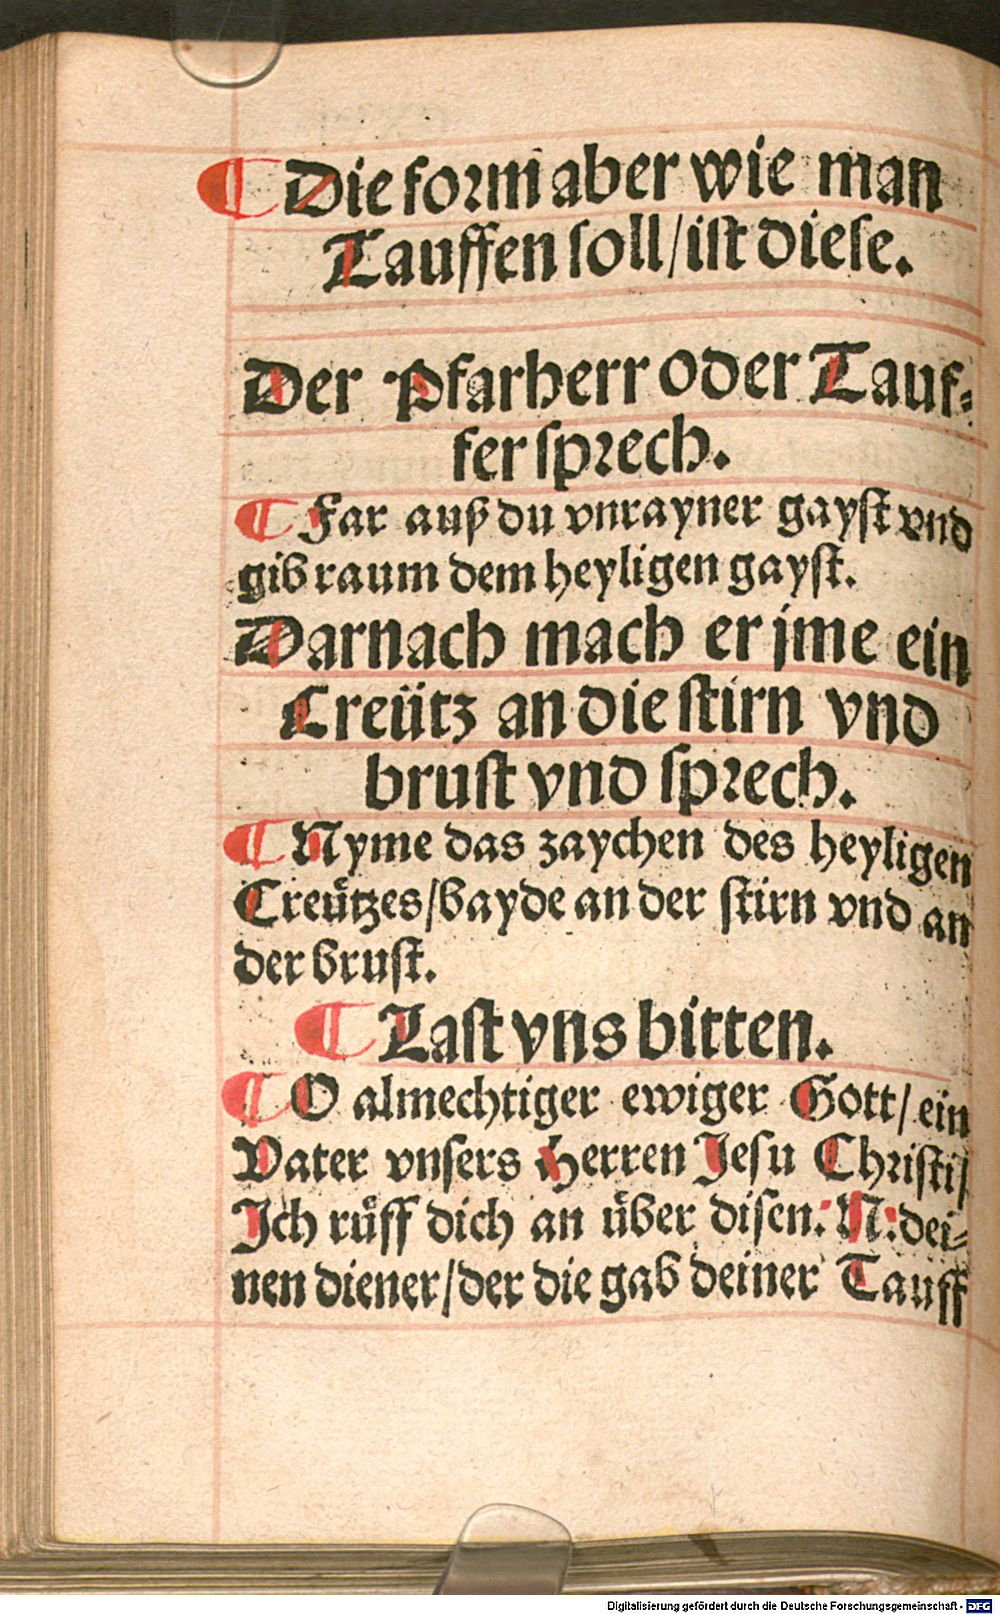 ¶ Die form aber wie man
Tauffen soll/ist diese.
Der Pfarherr oder Tauf⸗
fer sprech.
¶ Far auß du vnrayner gayst vnd
gib raum dem heyligen gayst.
Darnach mach er jme ein
Creütz an die stirn vnd
brust vnd sprech.
¶ Nyme das zaychen des heyligen
Creützes/bayde an der stirn vnd an
der brust.
¶ Last vns bitten.
¶ O almechtiger ewiger Gott/ein
Vater vnsers Herren Jesu Christi/
Ich rüff dich an über disen: N: dei⸗
nen diener/der die gab deiner Tauff
Digitalisierung gefördert durch die Deutsche Forschungsgemeinschaft - DFG